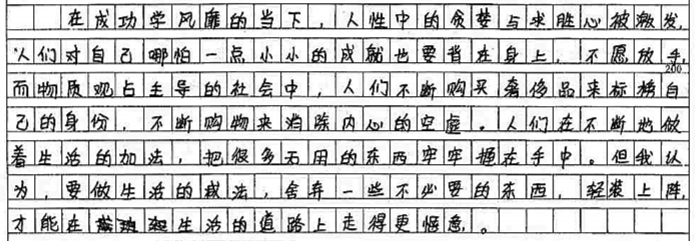 在成功学风靡的当下，人性中的贪婪与求胜心被激发，
人们对自己哪怕一点小小的成就也要背在身上，不愿放手，
200
而物质观占主导的社会中，人们不断购买奢侈品来标榜自
己的身份，不断购物来消除内心的空虚。人们在不断地做
着生活的加法，把很多无用的东西牢牢握在手中。但我认
为，要做生活的减法，舍弃一些不必要的东西，轻装上阵，
才能在生活的道路上走得更惬意。